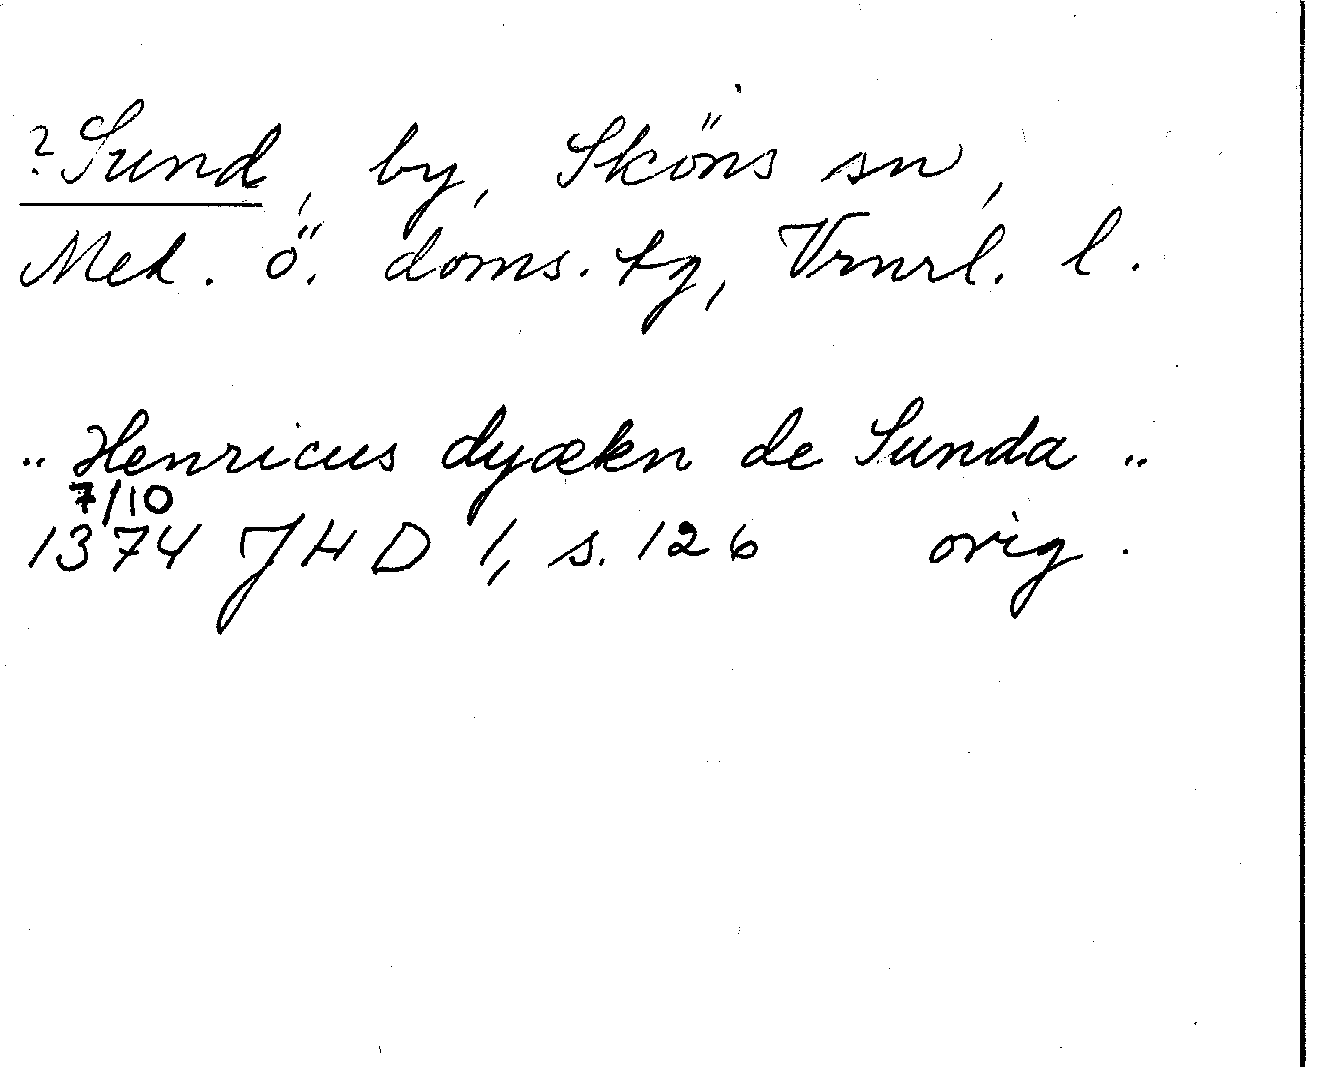 ?Sund, by, Sköns sn,
Med. ö. doms. tg, Vrnrl. l.
.. Henricus dyækn de Sunda ..
7/10
1374 JHD 1, s. 126 orig.